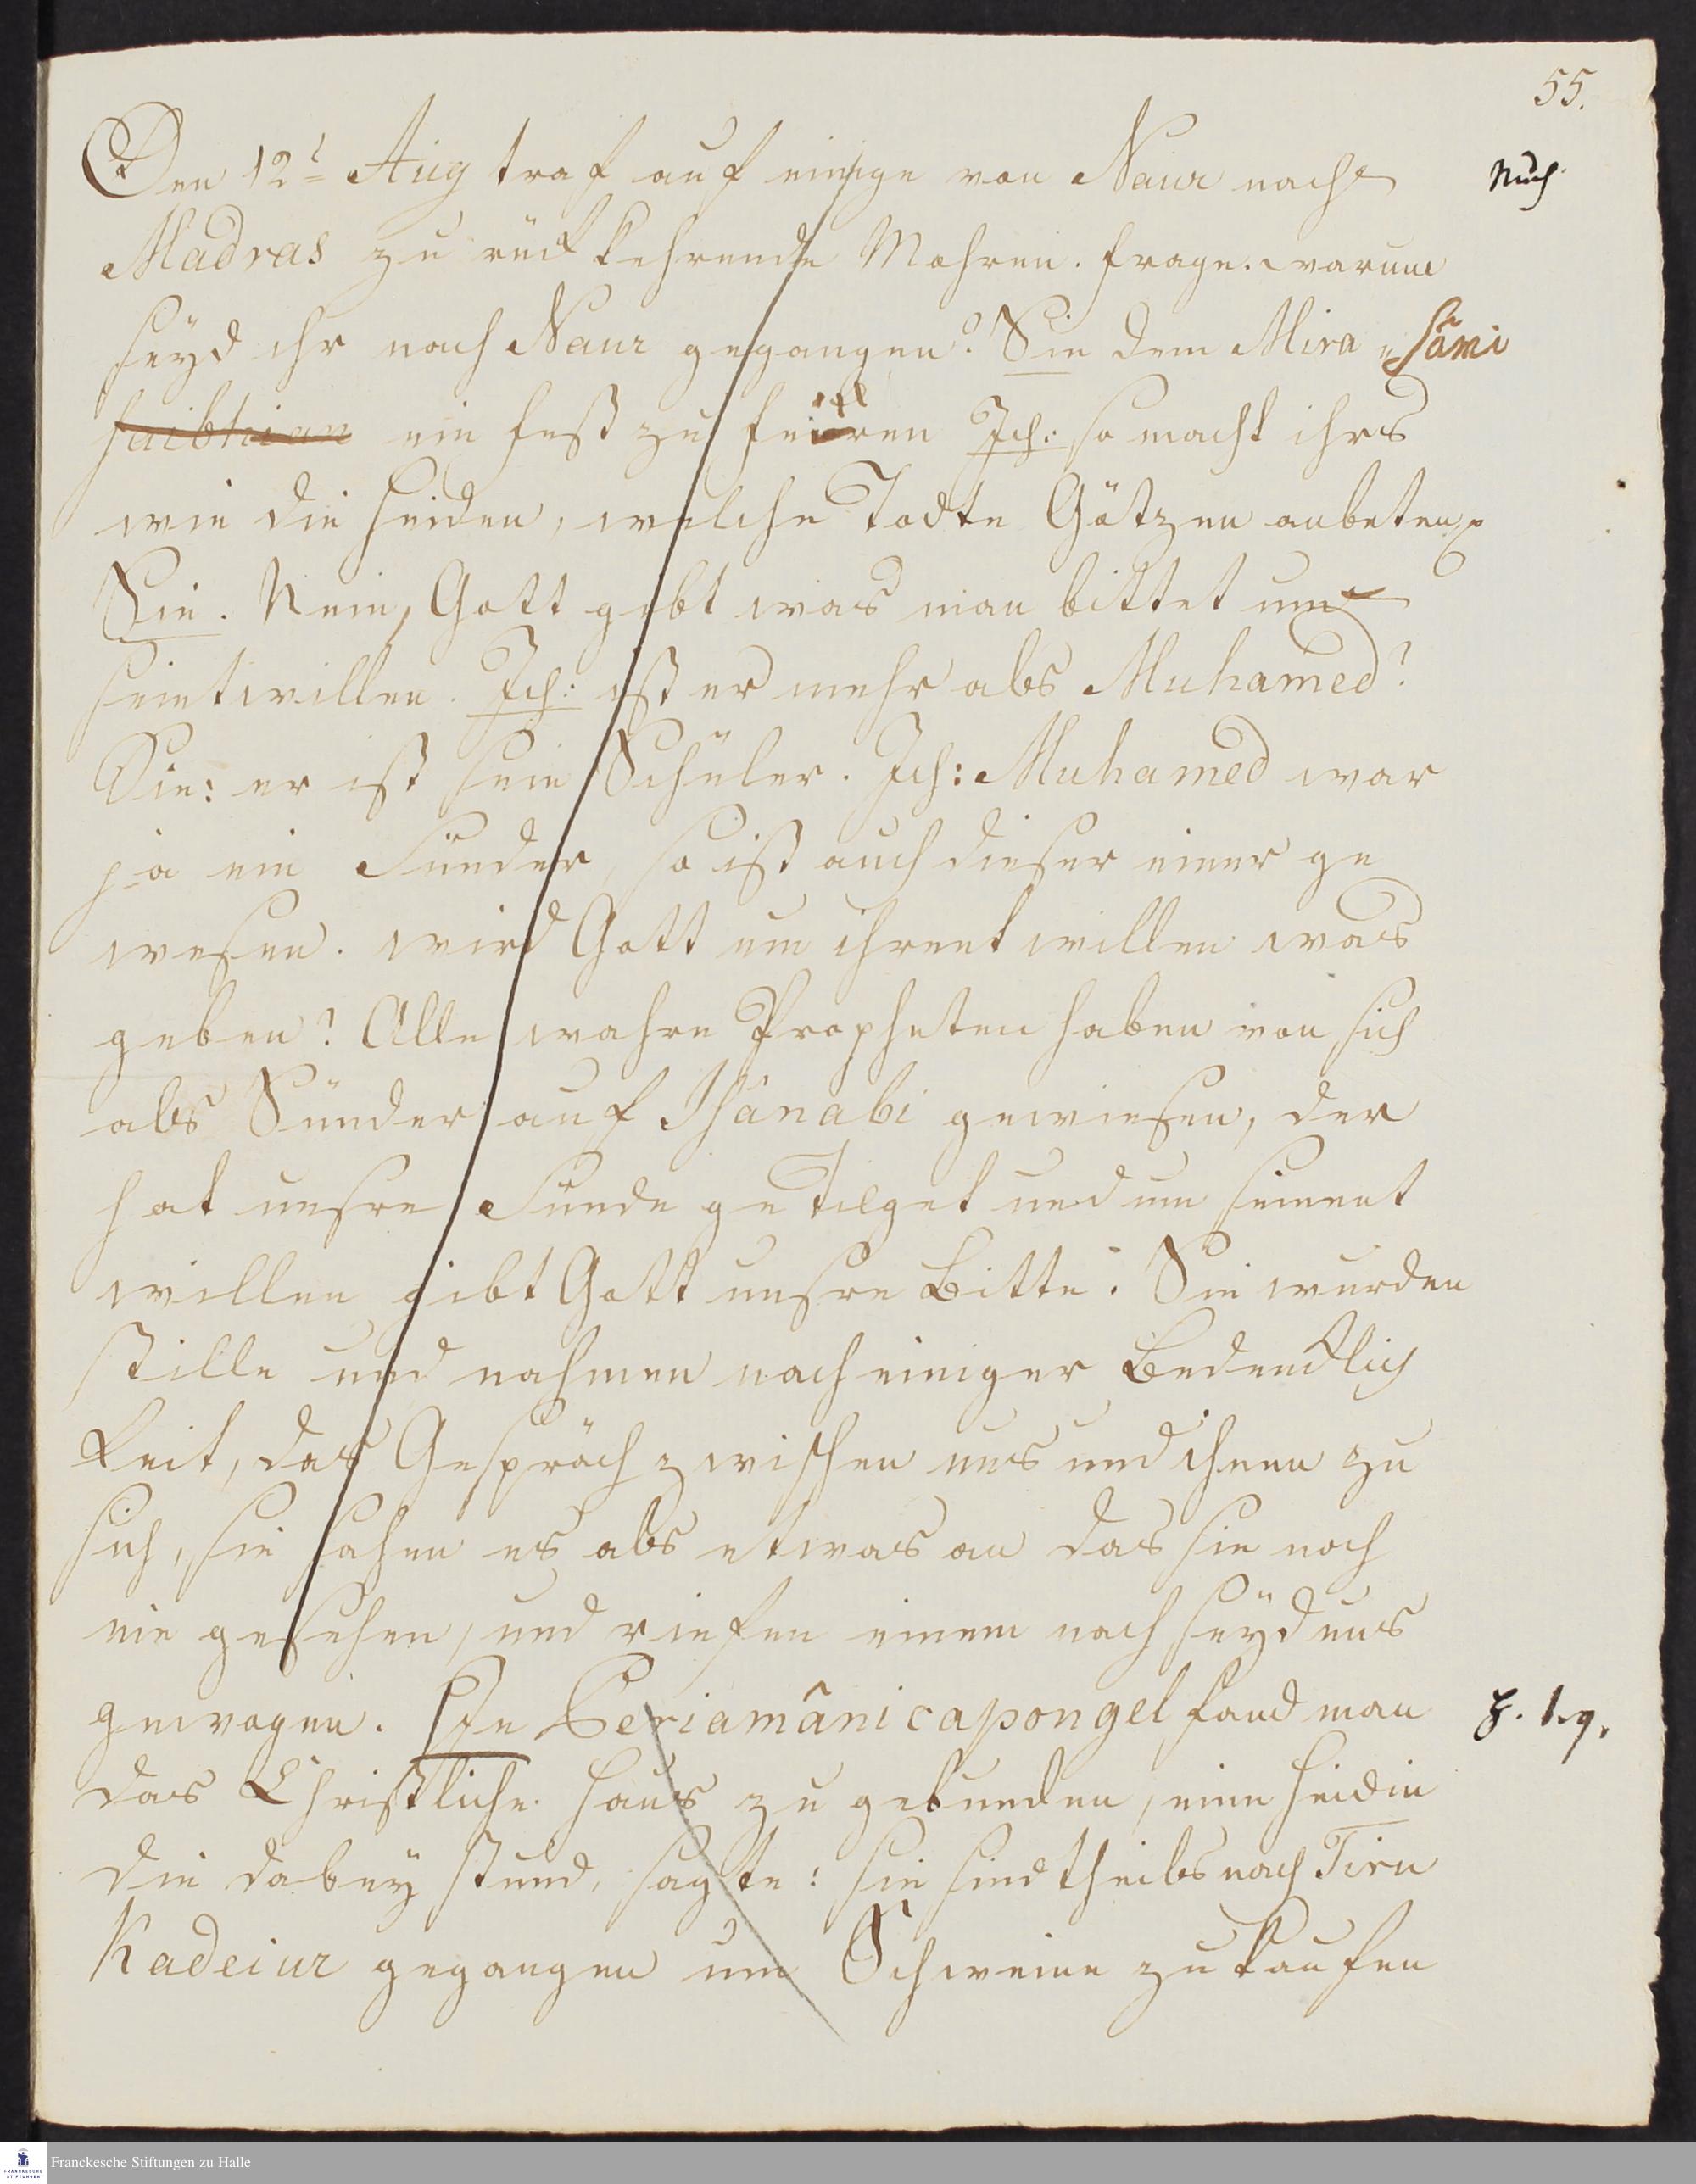 55.
Den 12t Aug traf auf einige von Naur nach
Much.
Madras zu rück kehrende Mohren. frage. warum
seyd ihr nach Naur gegangen? Sie dem Mira Sâmi
ein fest zu feiren Ich: so macht ihrs
wie die Heiden, welche Todte Götzen anbeten
Sie. Nein, Gott gibt was man bittet um
seintwillen. Ich: ist er mehr als Muhamed?
Sie: er ist sein Schüler. Ich: Muhamed war
ja ein Sünder, so ist auch dieser einer ge
wesen. wird Gott um ihrent willen was
geben? Alle wahre Propheten haben von sich
als Sünder auf Isânabi gewiesen, der
hat unsre Sünde ge Tilget und um seinent
willen gibt Gott unsre Bitte. Sie wurden
stille und nahmen nach einiger Bedencklich
keit, das Gespräch zwischen uns und ihnen zu
sich, sie sahen es als etwas an das sie noch
nie gesehen, und riefen einem nach seyd uns
gewogen. In Periamânicapongel fand man
das Christliche Haus zu gebunden, eine Heidin
die dabey stund, sagte: sie sind theils nach Tiru
Kadeiur gegangen um Schweine zu kaufen
Franckesche Stiftungen zu Halle
FRANCKESCHE
STIFTUNGEN